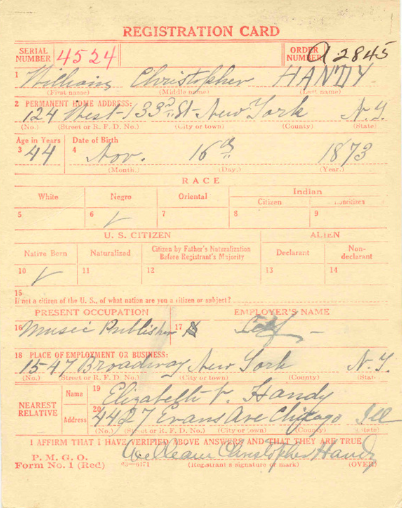 REGISTRATION CARD
SERIAL NUMBER 4524 ORDER NUMBER A 2845
1 William Christopher HANDY
(First name) (Middle name) (Last name)
2 PERMANENT HOME ADDRESS:
124 West-133rd St-New York N.Y.
(No.) (Street or R. F. D. No.) (City or town) (County) (State)
Age in Years Date of Birth
3 44 4 Nov. 16th 1873
(Month.) (Day.) (Year.)
RACE
White Negro Oriental Indian
Citizen
5 6 ✓ 7 8 9
U. S. CITIZEN ALIEN
Native Born Naturalized Citizen by Father's Naturalization Before Registrant's Majority Declarant Non-declarant
10 ✓ 11 12 13 14
15
If not a citizen of the U. S., of what nation are you a citizen or subject?
PRESENT OCCUPATION EMPLOYER'S NAME
16 Music Publisher 17
18 PLACE OF EMPLOYMENT OR BUSINESS:
1547 Broadway New York N.Y.
(No.) (Street or R. F. D. No.) (City or town) (County) (State)
NEAREST RELATIVE Name 19 Elizabeth V. Handy
Address 20 4427 Evans Ave Chicago Ill
(No.) (Street or R. F. D. No.) (City or town) (County) (State)
I AFFIRM THAT I HAVE VERIFIED ABOVE ANSWERS AND THAT THEY ARE TRUE
P. M. G. O.
Form No. 1 (Red) Christopher Handy
(Registrant's signature or mark) (OVER)